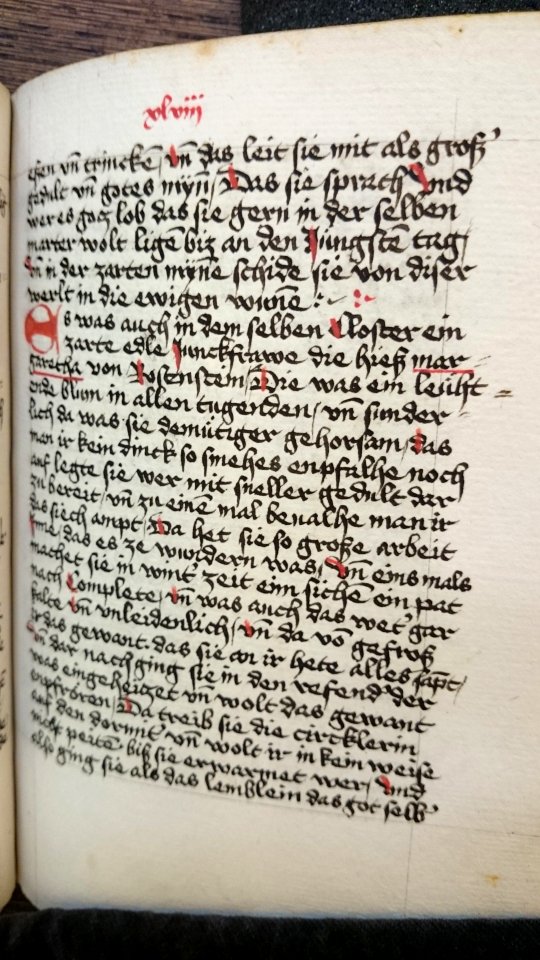 xlviij
essen vn̄ trincken̄ / vn̄ das leit sie mit als groſz'
gedult vn̄ gotes myn̄ / Das sie sprach Vnd
wer es gotz lob das sie gern in der selben
marter wolt ligen̄ biz an den Jungsten̄ tag /
vn̄ in der zarten myn̄e schide sie von diser
werlt in die ewigen wun̄e :~ :~
Es was auch in dem selben Closter ein
zarte edle Junckfrawe die hieß mar-
garetha von Rosenstein / Die was ein leuht=
ende blum in allen tugenden / vn̄ sunder-
lich da was sie demütiger gehorsam / das
man ir kein dinck so smehes enpfalhe noch
auf legte sie wer mit sneller gedult dar
zu bereit / vn̄ zu einē mal benalhe man ir
das siech ampt / Da het sie so große arbeit
jnne das es ze wundern was / Vn̄ eins mals
machet sie in wint' zeit eim sichen̄ ein pat
nach Complete / vn̄ was auch das wet' gar
kalte vn̄ vnleidenlich / vn̄ da vō gefroß
ir das gewant das sie an ir hete alles sāpt /
vn̄ dar nach ging sie in den refend' der
was eingeheitzet vn̄ wolt das gewant
enpfrören / Da treib sie die circklerin
auf den dormt' vn̄ wolt ir in kein weise
nicht peiten biß sie erwarmet wer / Vnd
also ging sie als das lemblein das got selb'